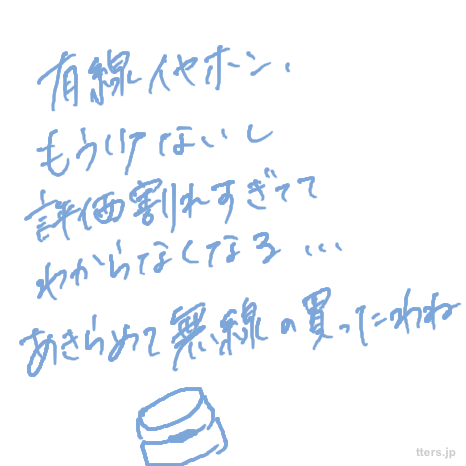 有線イヤホン、
もうけないし
評価割れすぎてて
わからなくなる...
あきらめて無線の買ったわね
tters.jp